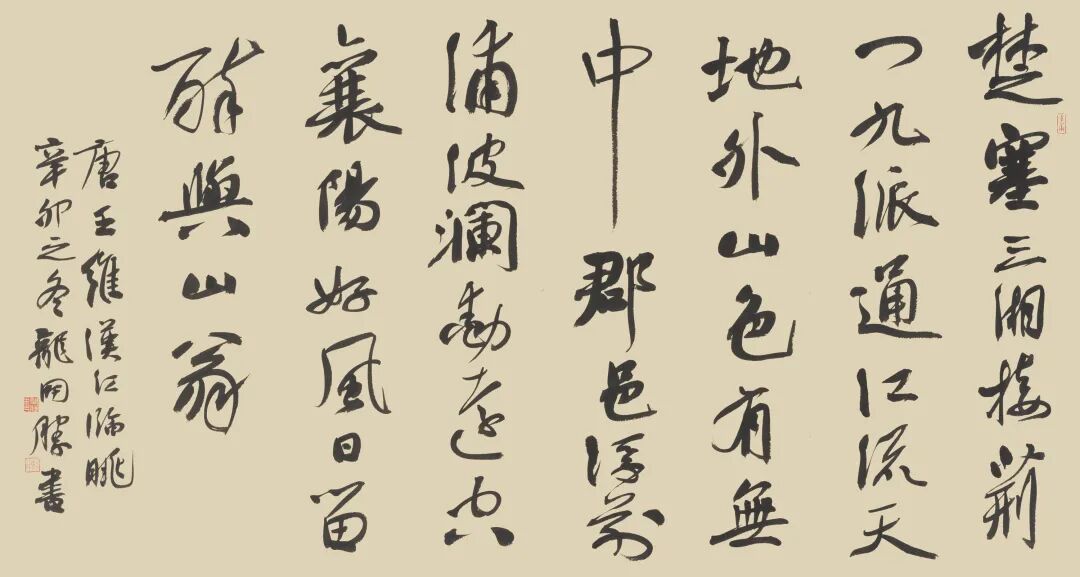 楚塞三湘接荆
门九派通江流天
地外山色有無
中郡邑浮前
浦波瀾動遠空
襄陽好風日留
醉與山翁
唐王維漢江臨眺
辛卯之冬龍開勝書